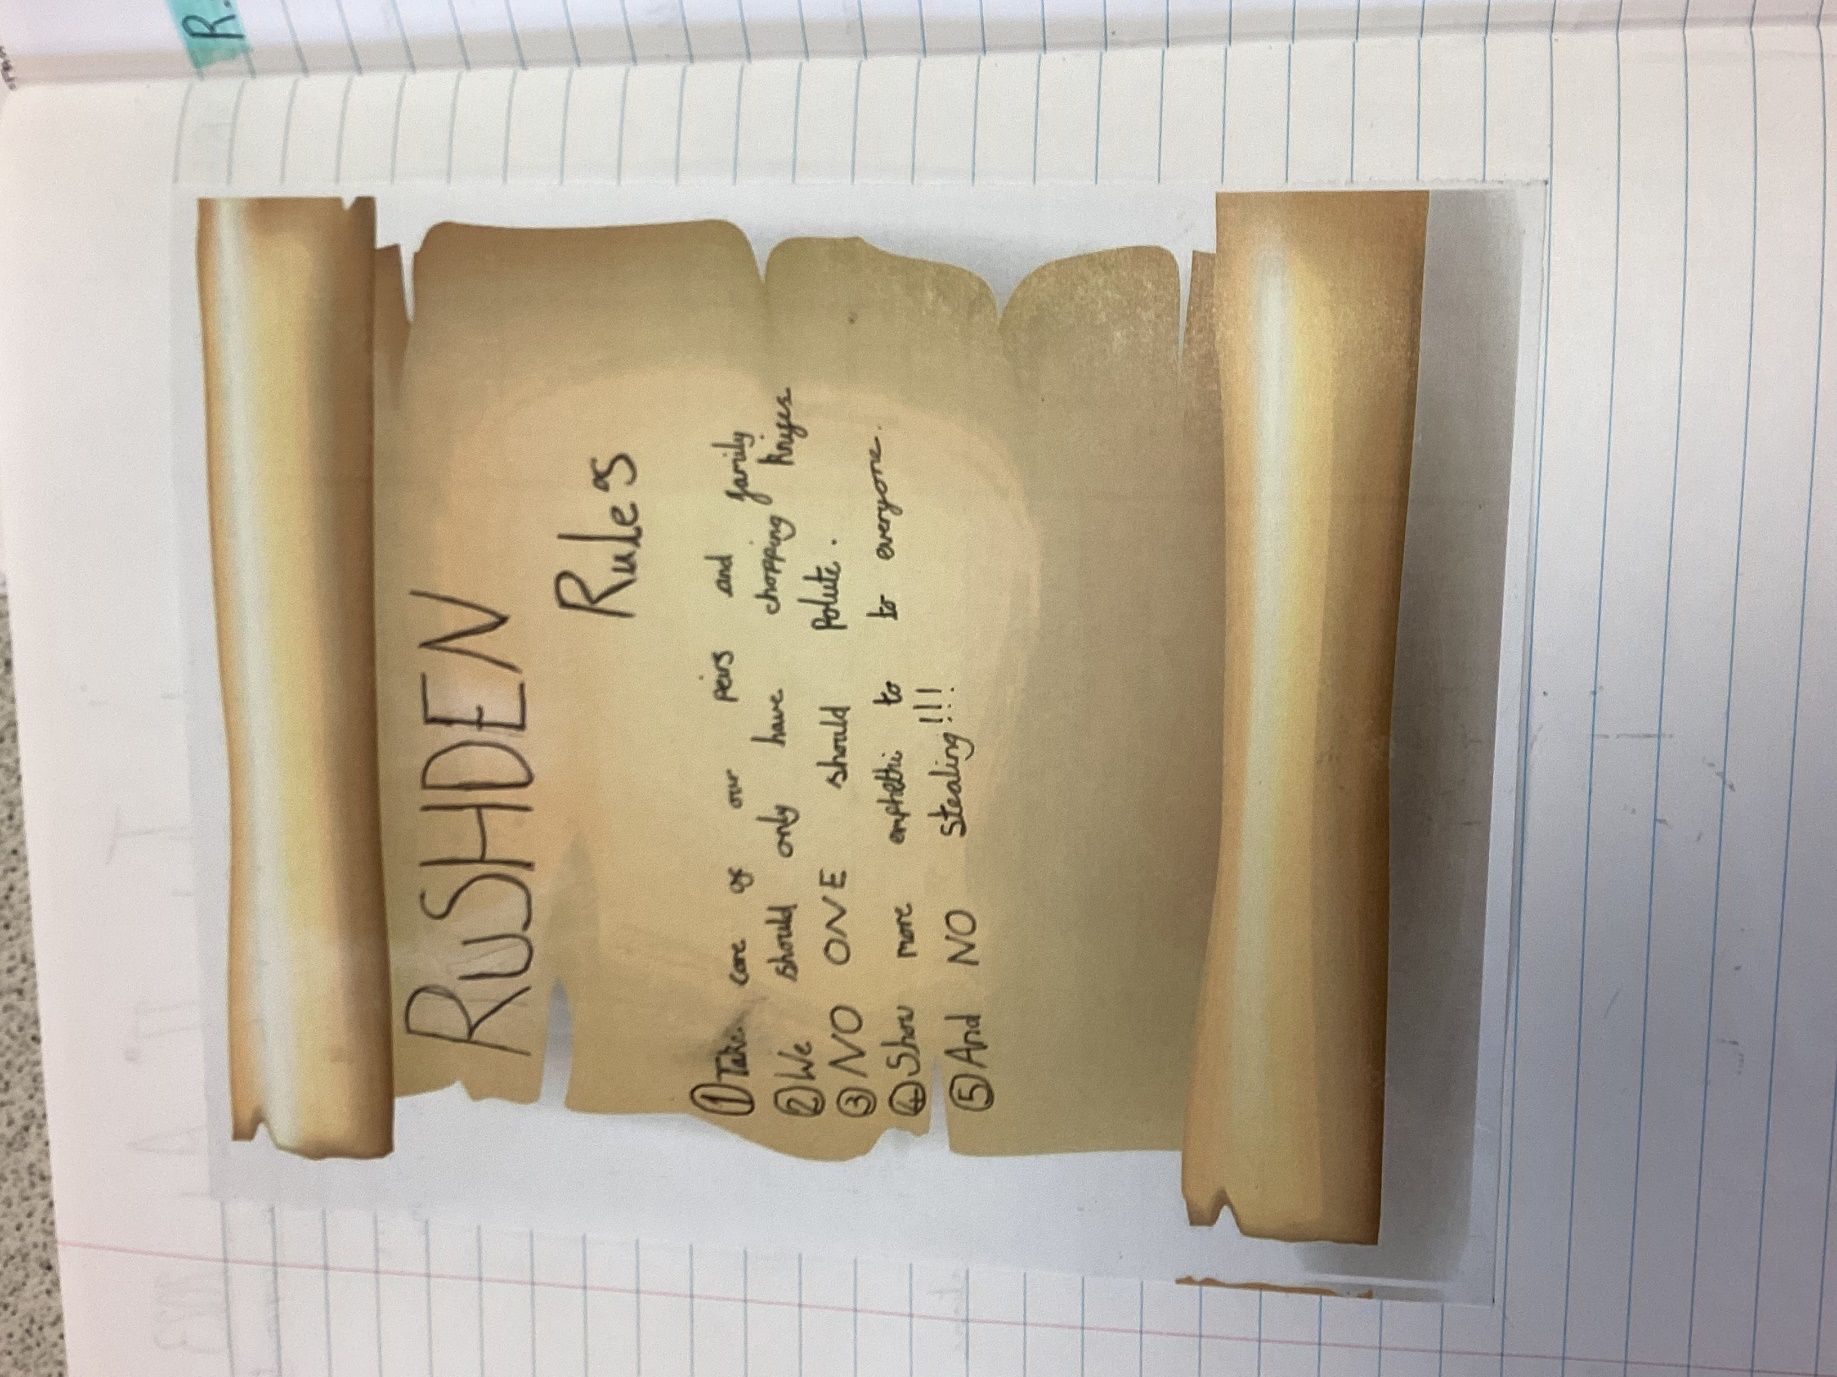 R.
RUSHDEN
Rules
① Take care of our peirs and family
② We should only have chopping knifes
③ NO ONE should polute.
④ Show more emphethi to to everyone.
⑤ And NO stealing!!!